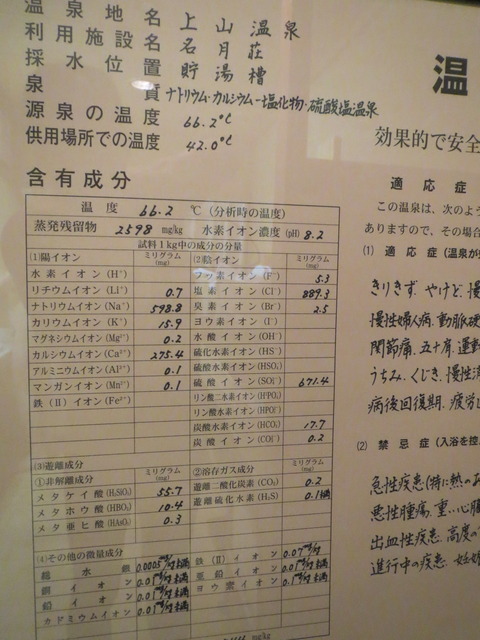 温泉地名 上山温泉
利用施設名 名月荘
採水位置 貯湯槽
泉質 ナトリウム・カルシウムー塩化物・硫酸塩温泉
源泉の温度 66.2℃
供用場所での温度 42.0℃
含有成分
温度 66.2 ℃ (分析時の温度)
蒸発残留物 2598 mg/kg 水素イオン濃度 (pH) 8.2
試料1kg中の成分の分量
(1)陽イオン ミリグラム(mg) (2)陰イオン ミリグラム(mg)
水素イオン(H⁺) フッ素イオン(F⁻) 5.3
リチウムイオン(Li⁺) 0.7 塩素イオン(Cl⁻) 889.3
ナトリウムイオン(Na⁺) 598.8 臭素イオン(Br⁻) 2.5
カリウムイオン(K⁺) 15.9 ヨウ素イオン(I⁻)
マグネシウムイオン(Mg²⁺) 0.2 水酸イオン(OH⁻)
カルシウムイオン(Ca²⁺) 275.4 硫化水素イオン(HS⁻)
アルミニウムイオン(Al³⁺) 0.1 硫酸水素イオン(HSO₄⁻)
マンガンイオン(Mn²⁺) 0.1 硫酸イオン(SO₄²⁻) 671.4
鉄(II)イオン(Fe²⁺) リン酸二水素イオン(H₂PO₄⁻)
リン酸水素イオン(HPO₄²⁻)
炭酸水素イオン(HCO₃⁻) 17.7
炭酸イオン(CO₃²⁻) 0.2
(3)遊離成分
①非解離成分 ミリグラム(mg) ②溶存ガス成分 ミリグラム(mg)
メタケイ酸(H₂SiO₃) 55.7 遊離二酸化炭素(CO₂) 0.2
メタホウ酸(HBO₂) 10.4 遊離硫化水素(H₂S) 0.1未満
メタ亜ヒ酸(HAsO₂) 0.3
(4)その他の微量成分
総水銀 0.0005mg/kg未満 鉄(II)イオン 0.07mg/kg
銅イオン 0.01mg/kg未満 亜鉛イオン 0.01mg/kg未満
鉛イオン 0.01mg/kg未満 ヨウ素イオン 0.1mg/kg未満
カドミウムイオン 0.01mg/kg未満
mg/kg
温
効果的で安全
適応症
この温泉は、次のよう
ありますので、その場合
(1) 適応症(温泉が
きりきず、やけど、慢
慢性婦人病、動脈硬
関節痛、五十肩、運動
うちみ、くじき、慢性消
病後回復期、疲労
(2) 禁忌症(入浴を控
急性疾患(特に熱の
悪性腫瘍、重い心臓
出血性疾患、高度の
進行中の疾患、妊娠